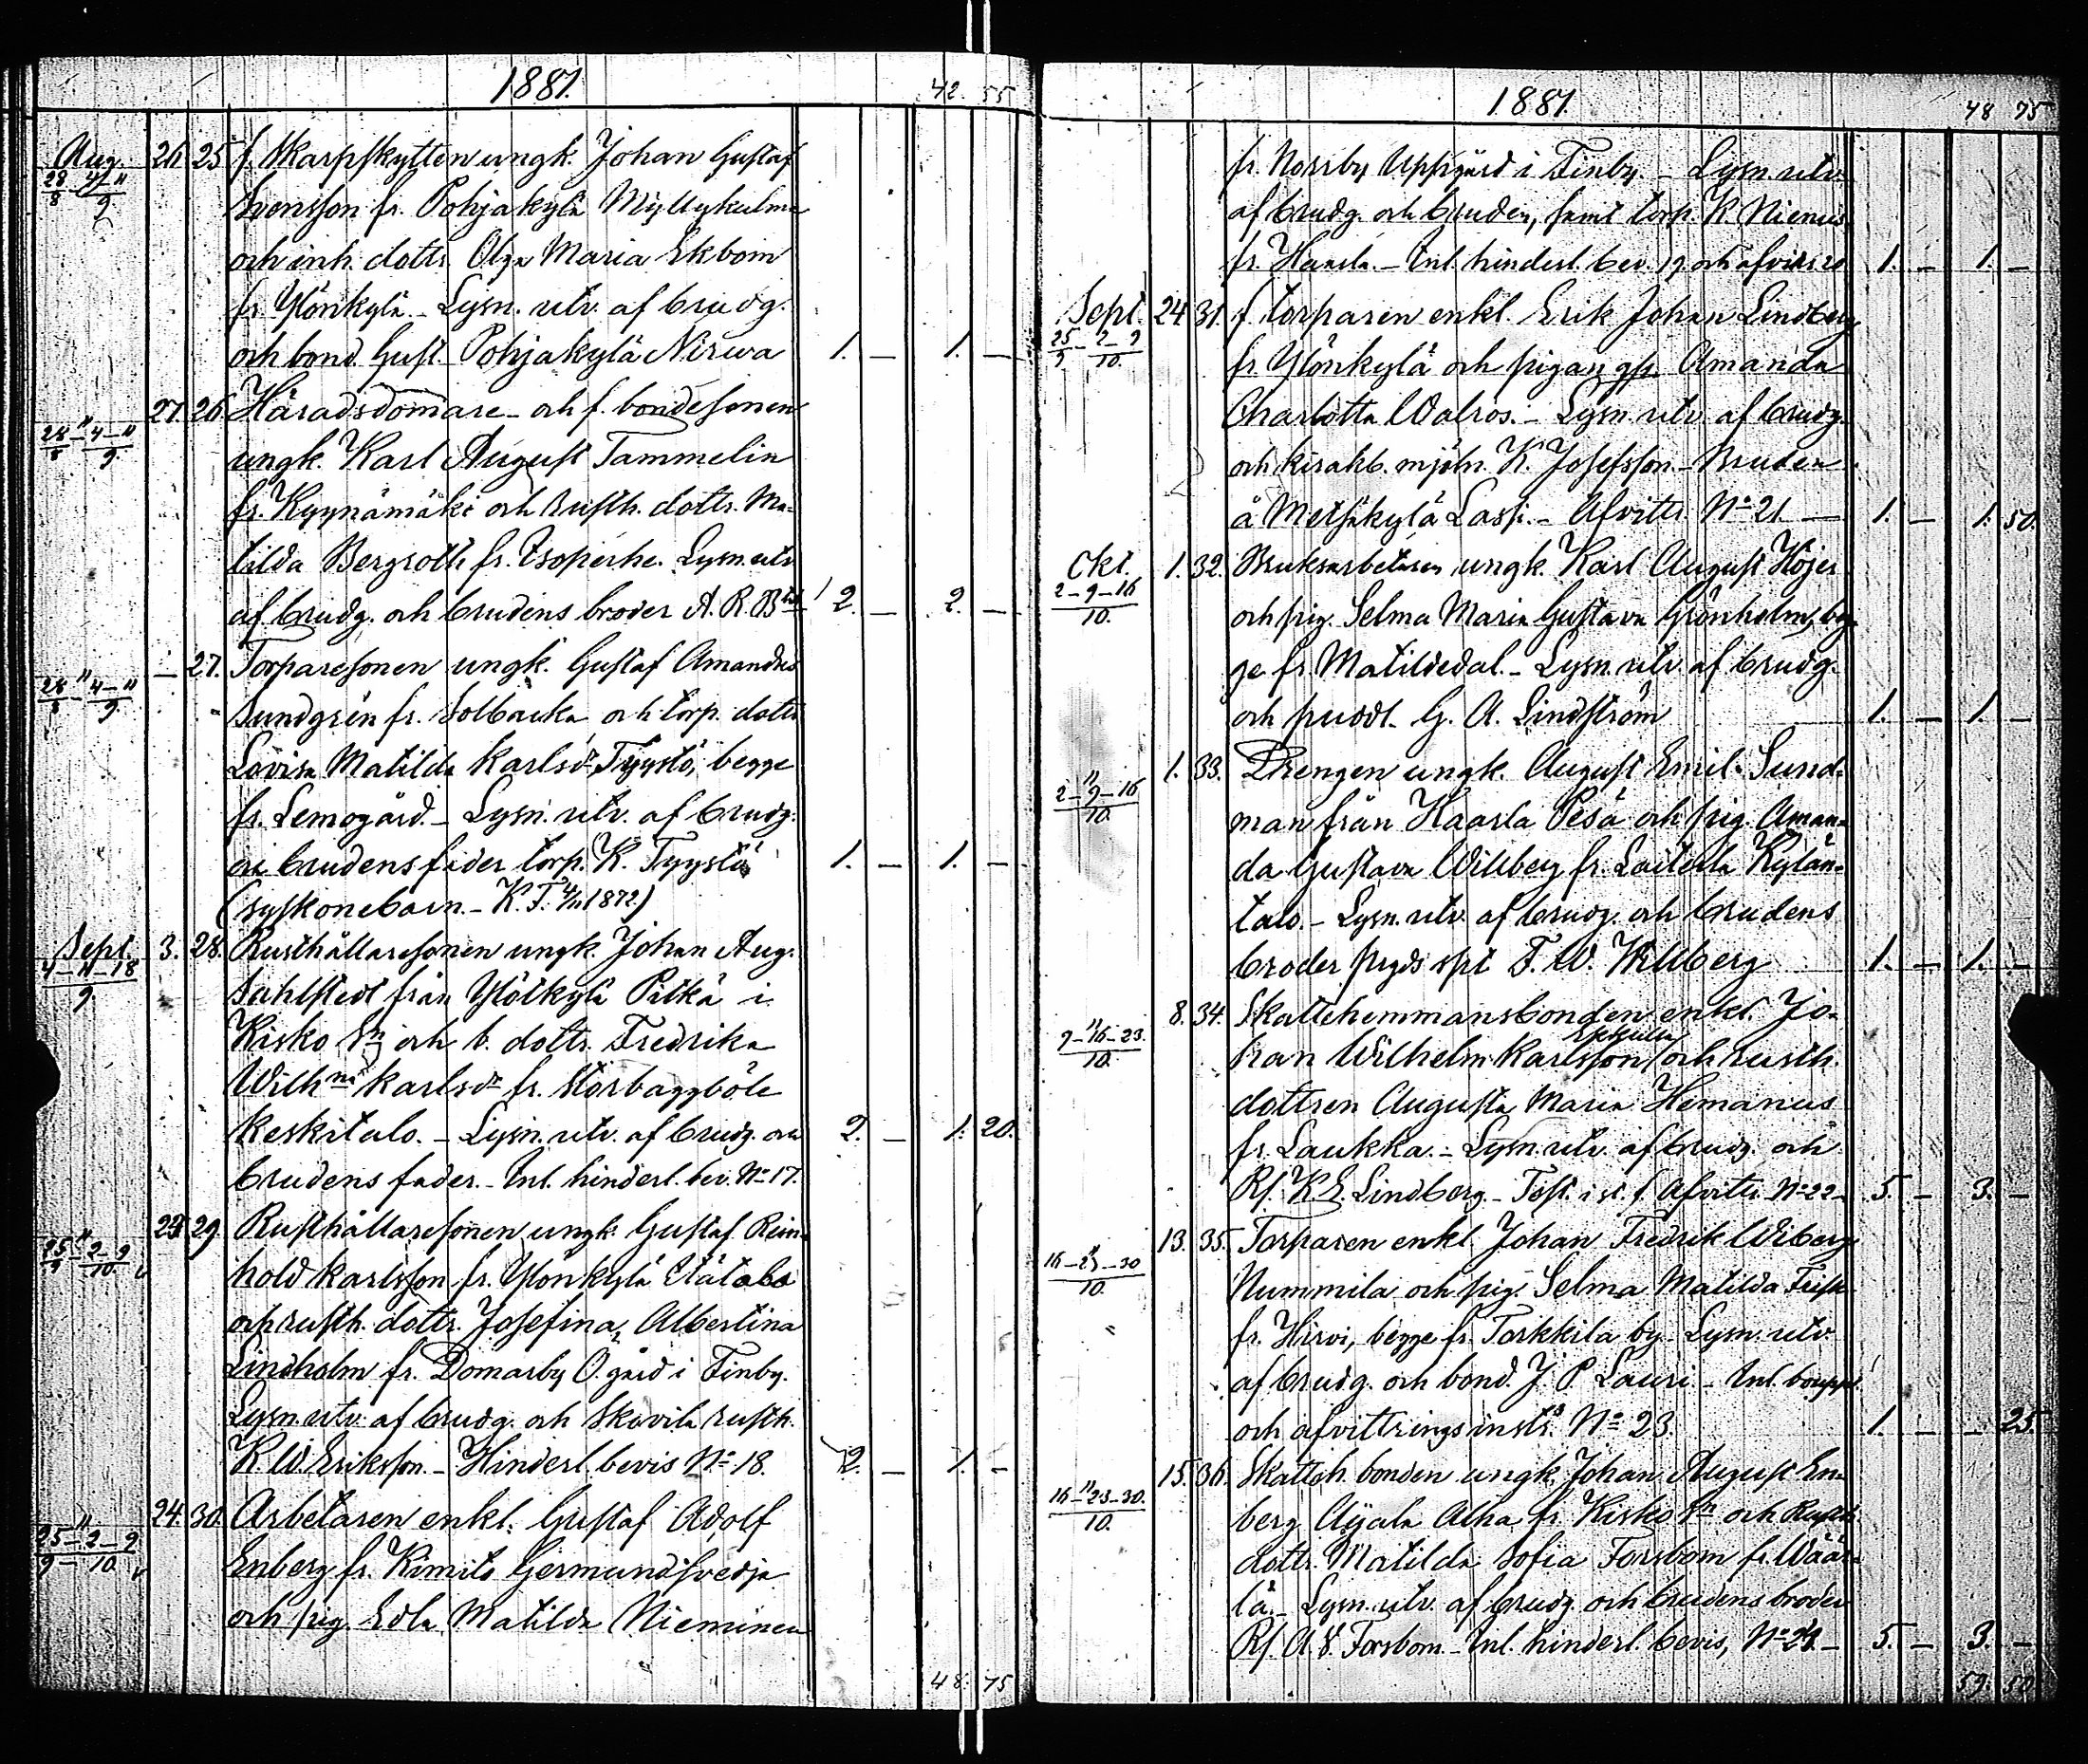 1881.
42. 55
Aug. 26. 25. f. Skarpskytten ungk. Johan Gustaf
28/8 – 4–11/9 Svensson fr. Pohjakylä Myllykulma
och inh. dottr. Olga Maria Ekbom
fr. Ylönkylä. – Lysn. utv. af brudg.
och bond. Gust. Pohjakylä Nirwa 1. – 1. –
27. 26. Häradsdomare- och f. bondesonen
28/8 – 4–11/9 ungk. Karl August Tammelin
fr. Kyynämäki och rusth. dottr. Ma-
tilda Bergroth fr. Isoperhe. Lysn. utv.
af brudg. och brudens broder A. R. 2. – 2. –
– 27. Torparesonen ungk. Gustaf Amandus
28/8 – 4–11/9 Sundgrén fr. Solbacka och torp. dottr.
Lovisa Matilda Karlsdr Tyystö, begge
fr. Lemogård. – Lysn. utv. af brudg.
o. brudens fader torp. K. Tyystö 1. – 1. –
(syskonebarn. – K. F. 4/11 1872)
Sept. 3. 28. Rusthållaresonen ungk. Johan Aug.
4–11–18/9. Sahlstedt från Ylötkylä Pitkä i
Kisko Sn och b. dottr. Fredrika
Wilhna Karlsdr fr. Storbaggböle
Keskitalo. – Lysn. utv. af brudg. och 2. – 1. 20.
brudens fader. – Inl. hinderl. bev. No 17.
24. 29. Rusthållaresonen ungk. Gustaf Rein-
25/9 – 2–9/10 hold Karlsson fr. Ylönkylä Ylätalo
och rusth. dottr. Josefina Albertina
Lindholm fr. Domarby O.gård i Finby.
Lysn. utv. af brudg. och Skovila rusth.
K. W. Eriksson. – Hinderl. bevis No 18. 2. – 1. –
24. 30. Arbetaren enkl. Gustaf Adolf
25/9 – 2–9/10 Enberg fr. Kimito Germundsvedja
och pig. Edla Matilda Nieminen
48. 75
1881.
48 75
fr. Norrby Uppgård i Finby. – Lysn. utv.
af brudg. och bruden, samt torp. K. Niemis
fr. Haarla. – Inl. hinderl. bev. 19 och afvittr. 20 1. – 1. –
Sept. 24. 31. f. torparen enkl. Erik Johan Lindberg
25/9 – 2–9/10. fr. Ylönkylä och pigan Amanda
Charlotta Walros. – Lysn. utv. af brudg.
och kirakb. mjöln. K. Josefsson. – Bruden
å Metsäkylä Lassi. – Afvittr. No 21. – 1. – 1. 50.
Okt. 1. 32. Bruksarbetaren, ungk. Karl August Höjer
2–9–16/10. och pig. Selma Maria Gustava Grönholm, beg-
ge fr. Matildedal. – Lysn. utv. af brudg.
och puddl. G. A. Lindström 1. – 1. –
1. 33. Drengen ungk. August Emil Sund-
2–9–16/10. man från Haarla Pesä och pig. Aman-
da Gustava Willberg fr. Laiterla Kylän-
talo. – Lysn. utv. af brudg. och brudens
broder F. W. Willberg 1. – 1. –
8. 34. Skattehemmansbonden enkl. Jo-
9–16–23./10. han Wilhelm Karlsson och rusth.
dottren Augusta Maria Hemanus
fr. Laukka. – Lysn. utv. af brudg. och
Rf. K. E. Lindberg. – Afvittr. No 22– 5. – 3. –
13. 35. Torparen enkl. Johan Fredrik Wiberg
16–23–30/10. Nummila och pig. Selma Matilda Frisk
fr. Hirvi, begge fr. Torkkila by. Lysn. utv.
af brudg. och bond. J. P. Lauri. – Inl. bouppt.
och afvittringsinstr. No 23. 1. – – 25.
15. 36. Skatteh. bonden ungk. Johan August En-
16–23–30./10. berg Äijälä Alha fr. Kisko Sn och Rusth.
dottr. Matilda Sofia Forsbom fr. Wäär-
lä. – Lysn. utv. af brudg. och brudens broder
Rf. A. V. Forsbom. – Inl. hinderl. bevis, No 24. – 5. – 3. –
59. 50